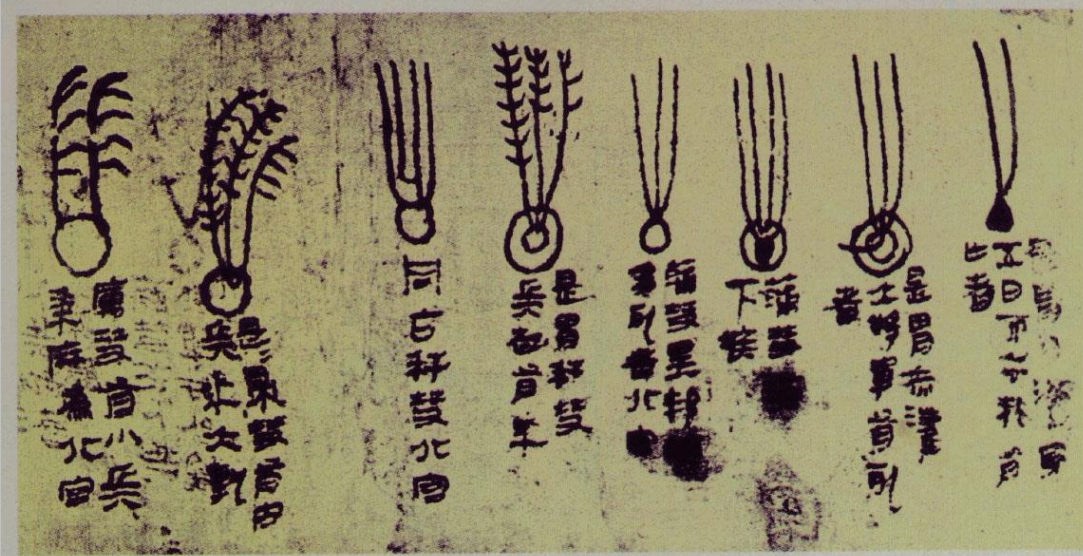 五日而去邦有
亡者
是胃赤灌
大將軍有死
者
蒲彗天
下疾
蒲彗星邦疢
多死者北宮
是胃秆彗
兵起有年
同占秆彗北宮
是是帚彗有內
兵年大孰
厲彗有小兵
黍麻為北宮